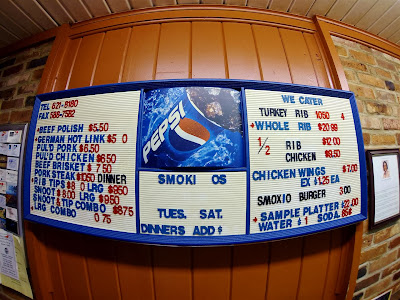 TEL 621-8180
FAX. 588-7582
+BEEF POLISH $5.50
+GERMAN HOT LINK $5 0
PUL'D PORK $6.50
PUL'D CHICKEN $6.50
BEEF BRISKET $7.50
PORK STEAK DINNER
RIB TIPS LRG $9.50
SNOOT LRG $9.50
SNOOT & TIP COMBO $8.75
LRG COMBO
PEPSI
SMOKI OS
TUES. SAT.
DINNERS ADD $
WE CATER
TURKEY RIB 10.50 4
+WHOLE RIB $20.99
1/2 RIB $12.00
CHICKEN $9.50
CHICKEN WINGS 7.00
EX $1.25 EA
SMOXIO BURGER 3.00
+SAMPLE PLATTER $22.00
WATER $1 SODA. 85¢